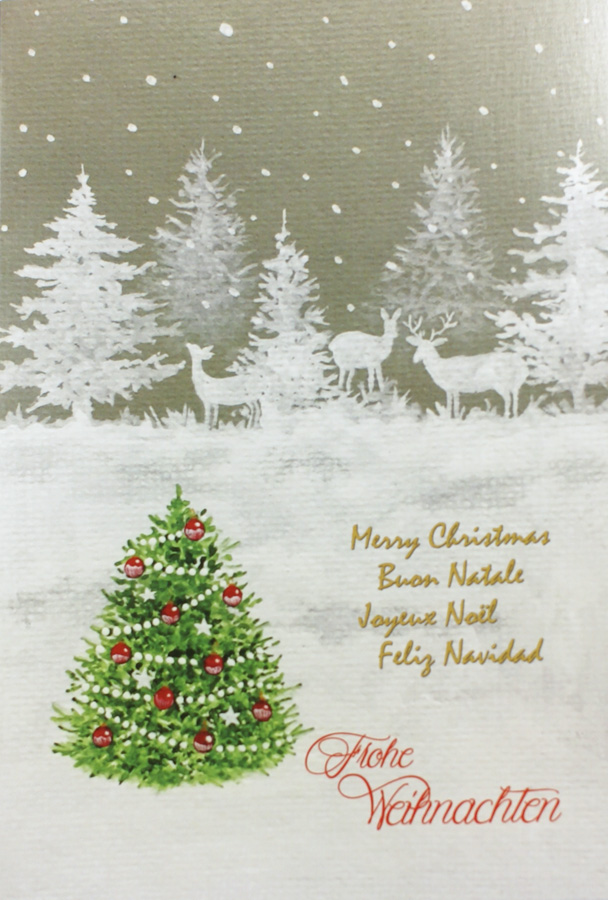 Merry Christmas
Buon Natale
Joyeux Noël
Feliz Navidad
Frohe
Weihnachten